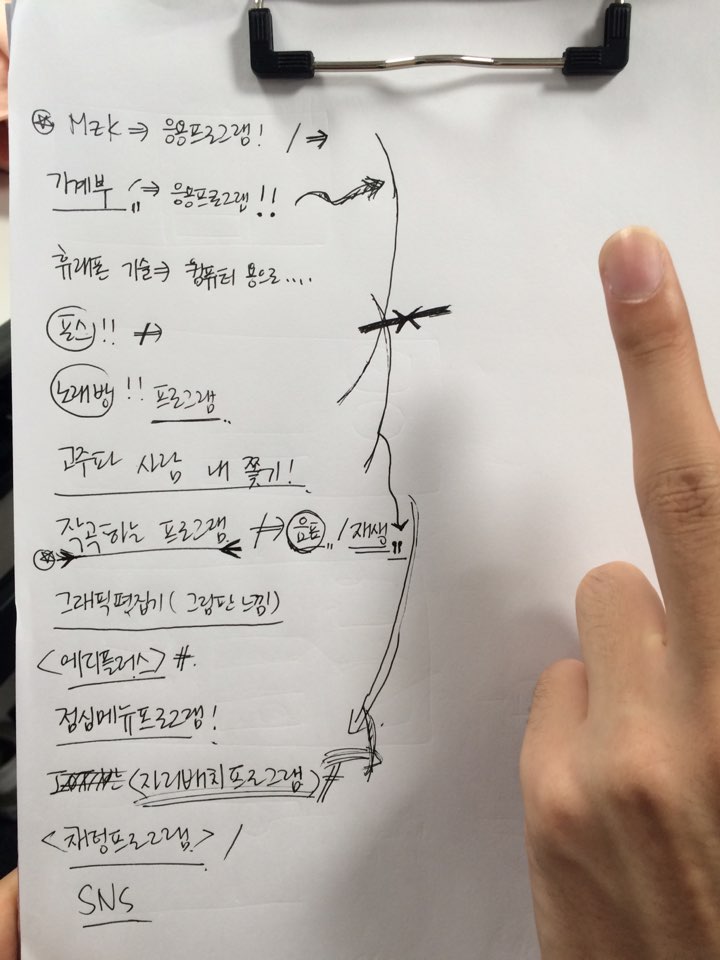 Mzk ⇒ 응용프로그램! / ⇒
가계부 /⇒ 응용프로그램!!
휴대폰 기술⇒ 컴퓨터 용으로....
포스!! ⇒
노래방!! 프로그램..
고주파 사람 내 쫓기!
작곡하는 프로그램. ⇒ 음표,, / 재생!!
그래픽편집기(그림판느낌)
<에디플러스> #.
점심메뉴프로그램!
(자리배치프로그램)#
<채팅프로그램.> /
SNS